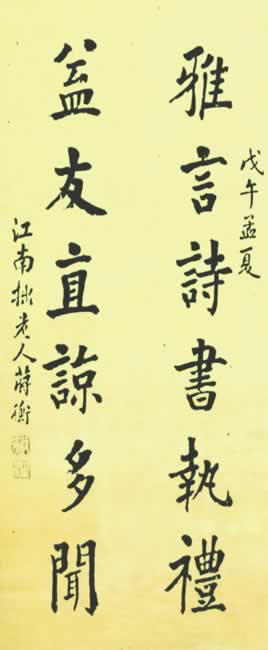 戊午孟夏
雅言詩書執禮
益友直諒多聞
江南拙老人蔣衡